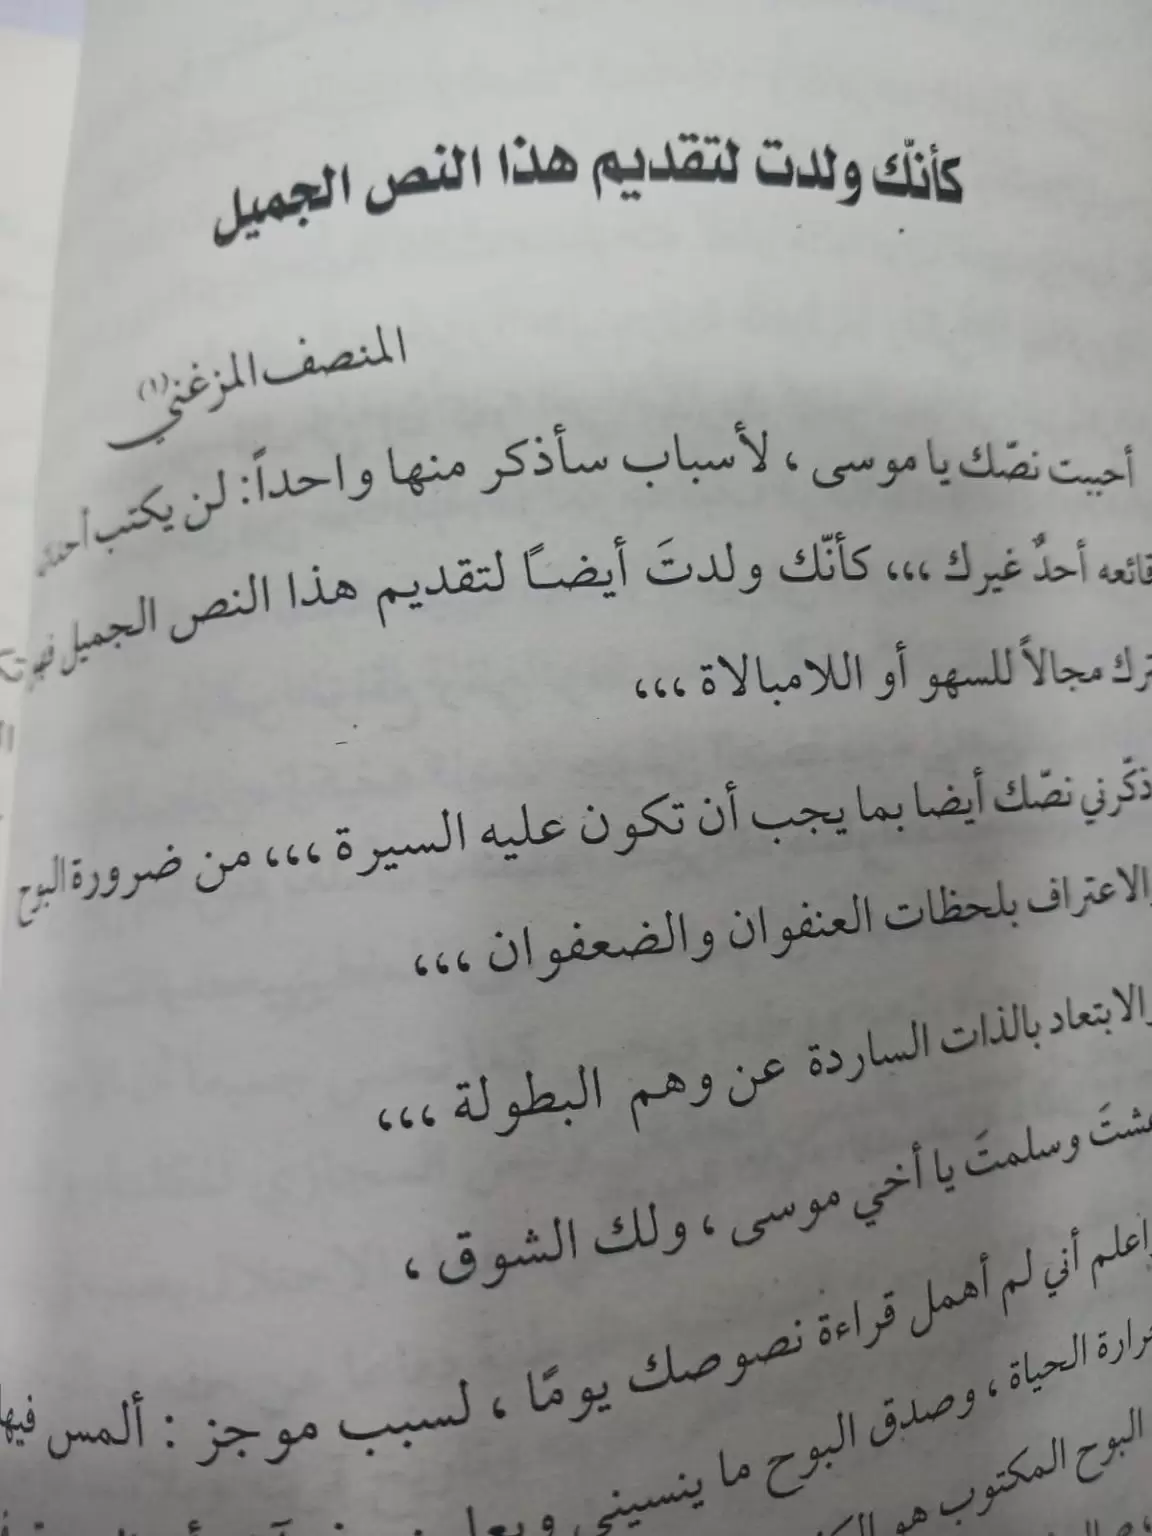 كأنّك ولدت لتقديم هذا النص الجميل
المنصف المزغني (١)
أحببت نصّك يا موسى ، لأسباب سأذكر منها واحداً: لن يكتب
أحدٌ غيرك ،،، كأنّك ولدتَ أيضاً لتقديم هذا النص الجميل
مجالاً للسهو أو اللامبالاة ،،،
نصّك أيضا بما يجب أن تكون عليه السيرة ،،، من ضرورة البوح
والاعتراف بلحظات العنفوان والضعفوان ،،،
والابتعاد بالذات الساردة عن وهم البطولة ،،،
عشتَ وسلمتَ يا أخي موسى ، ولك الشوق ،
واعلم أني لم أهمل قراءة نصوصك يومًا ، لسبب موجز : ألمس فيها
حرارة الحياة ، وصدق البوح ما ينسيني
البوح المكتوب هو